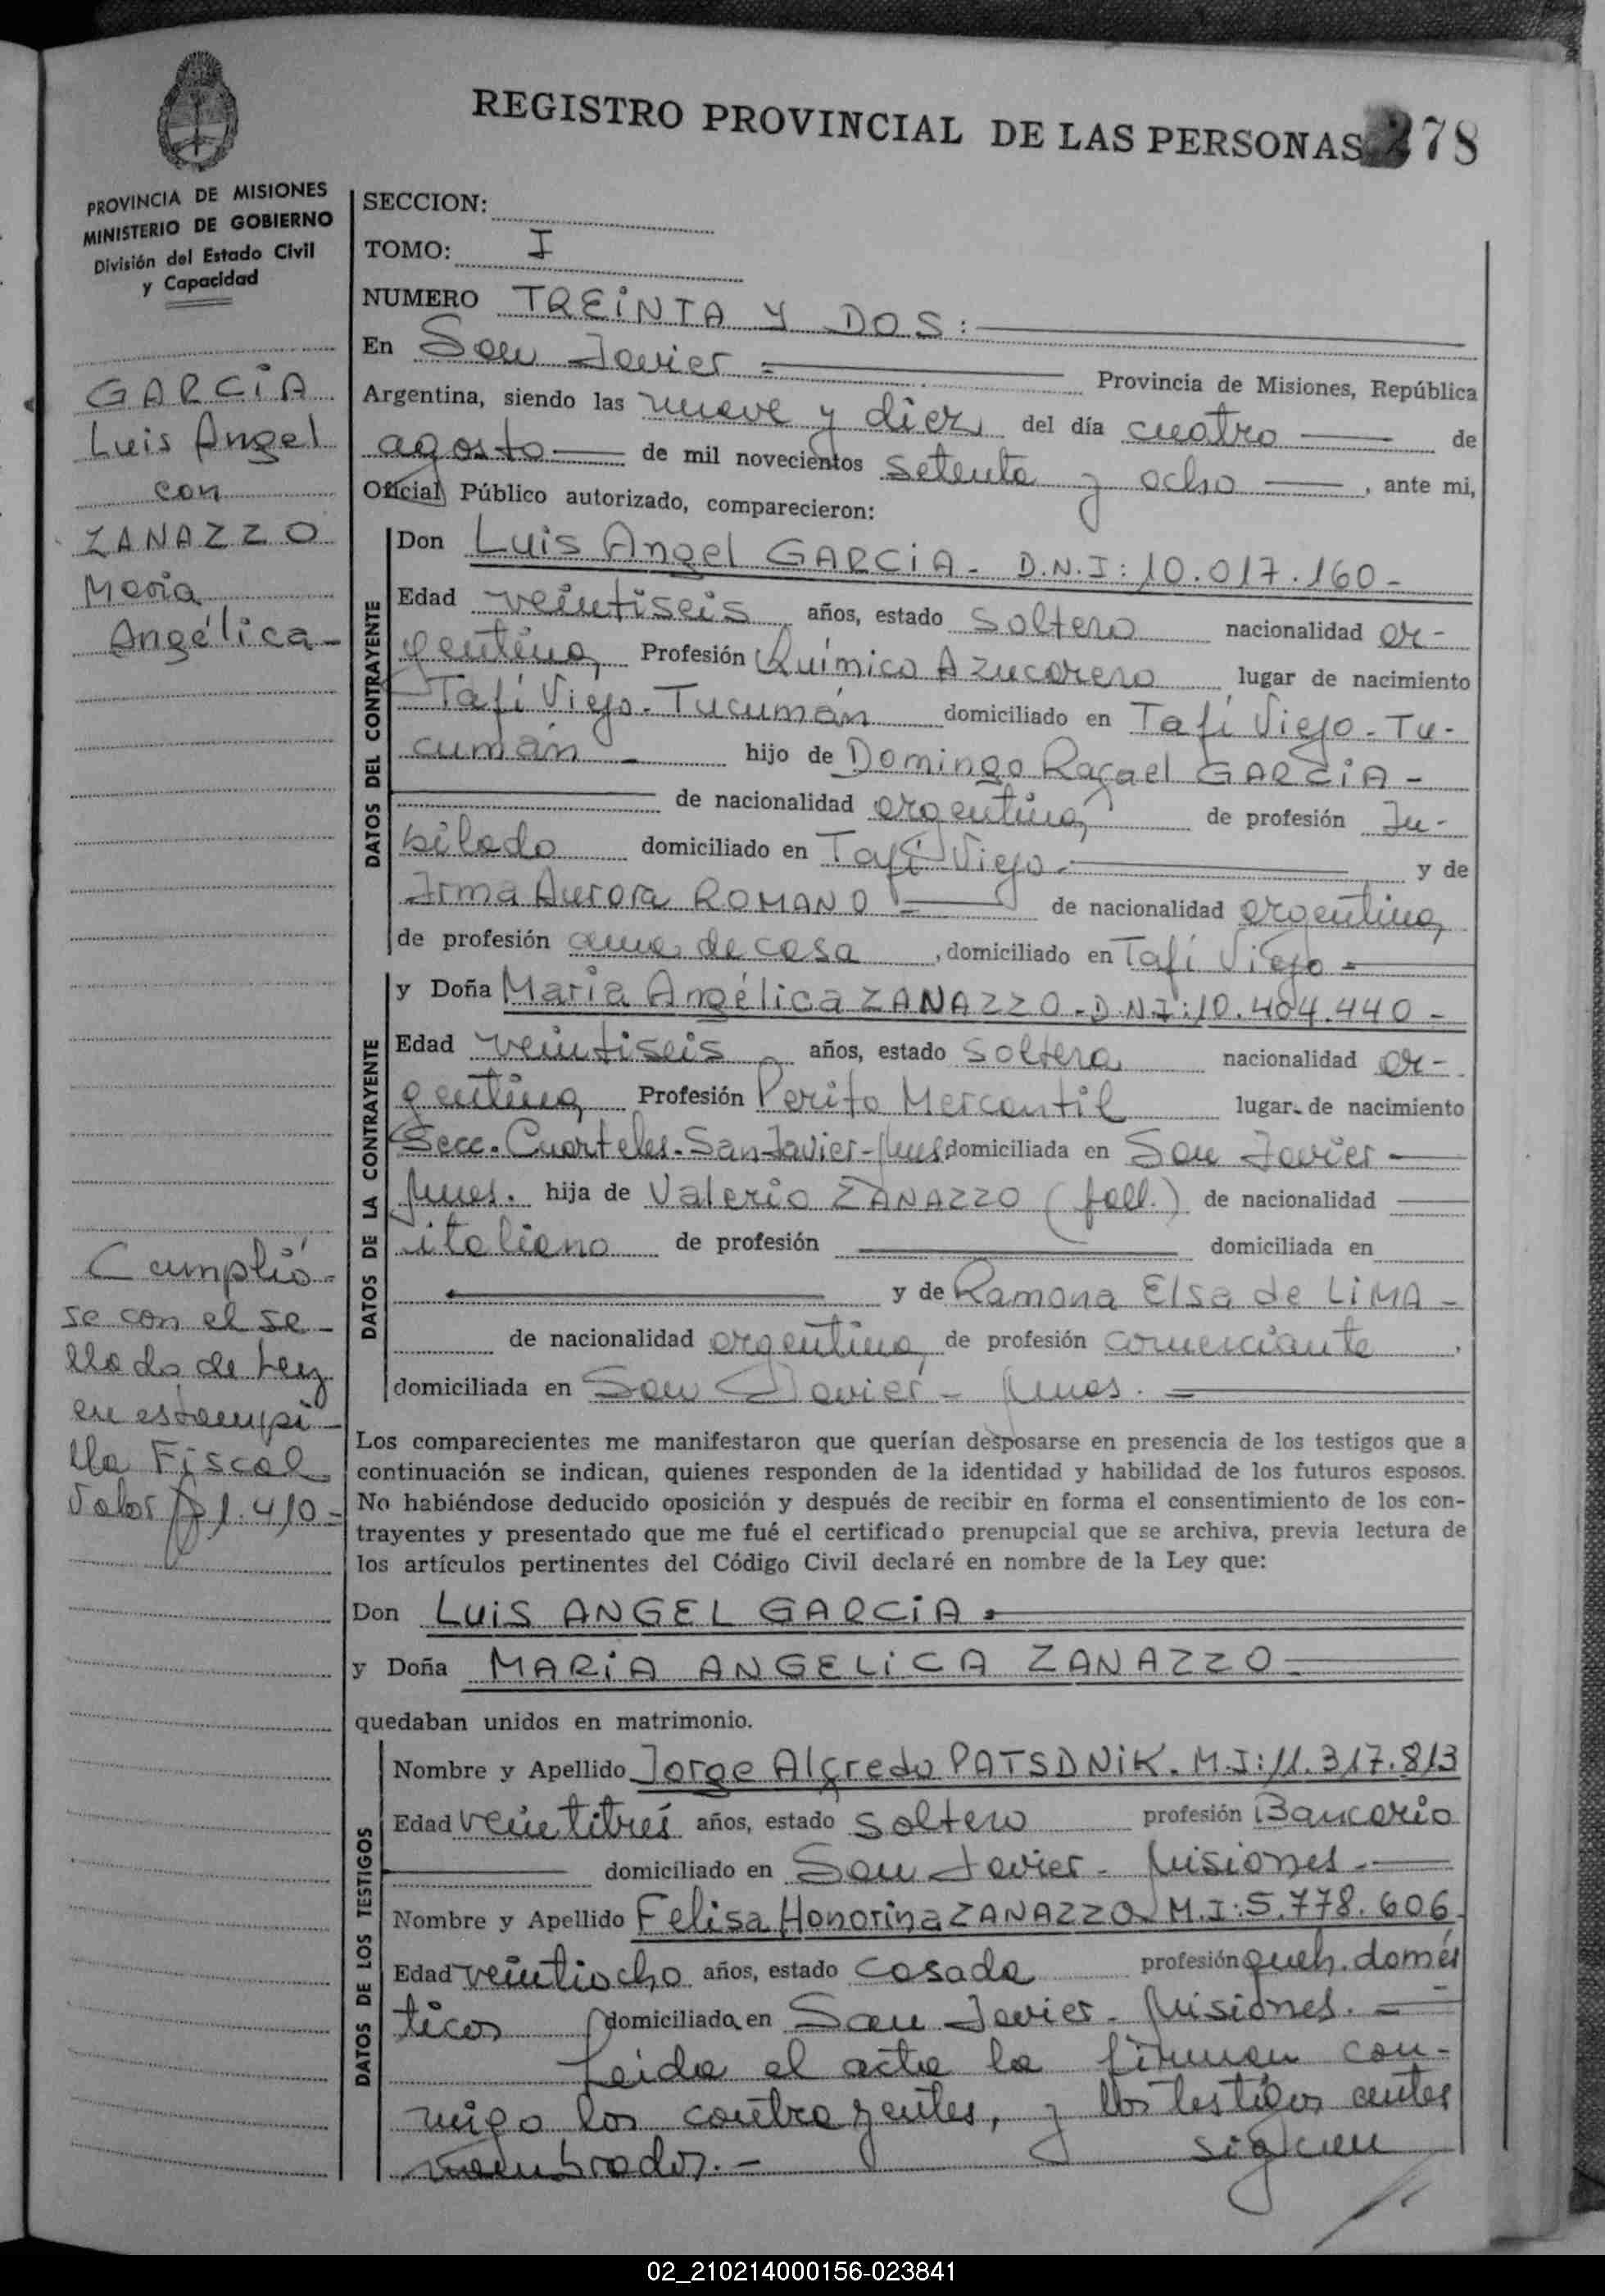 REGISTRO PROVINCIAL DE LAS PERSONAS 278
PROVINCIA DE MISIONES
MINISTERIO DE GOBIERNO
División del Estado Civil
y Capacidad
GARCIA
Luis Angel
con
ZANAZZO
Maria
Angélica-
Cumplió-
se con el se-
llado de Ley
en estampi-
lla Fiscal
Valor $ 1.410-
SECCION:
TOMO: I
NUMERO TREINTA Y DOS:
En San Javier = Provincia de Misiones, República
Argentina, siendo las nueve y diez del día cuatro de
agosto de mil novecientos setenta y ocho, ante mi,
Oficial Público autorizado, comparecieron:
DATOS DEL CONTRAYENTE
Don Luis Angel GARCIA- D.N.I: 10.017.160-
Edad veintiseis años, estado soltero nacionalidad ar-
gentina, Profesión Químico Azucarero lugar de nacimiento
Tafí Viejo-Tucumán domiciliado en Tafí Viejo-Tu-
cumán- hijo de Domingo Rafael GARCIA-
de nacionalidad argentina, de profesión Ju-
bilado domiciliado en Tafí Viejo- y de
Irma Aurora ROMANO = de nacionalidad argentina,
de profesión ama de casa, domiciliado en Tafí Viejo-
DATOS DE LA CONTRAYENTE
y Doña Maria Angélica ZANAZZO-D.N.I:10.404.440-
Edad veintiseis- años, estado soltera nacionalidad ar-
gentina, Profesión Perito Mercantil lugar de nacimiento
Secc. Cuarteles-San Javier-Mnes domiciliada en San Javier-
Mnes. hija de Valerio ZANAZZO (fall.) de nacionalidad
italiano de profesión domiciliada en
y de Ramona Elsa de LIMA-
de nacionalidad argentina, de profesión comerciante,
domiciliada en San Javier- Mnes. =
Los comparecientes me manifestaron que querían desposarse en presencia de los testigos que a
continuación se indican, quienes responden de la identidad y habilidad de los futuros esposos.
No habiéndose deducido oposición y después de recibir en forma el consentimiento de los con-
trayentes y presentado que me fué el certificado prenupcial que se archiva, previa lectura de
los artículos pertinentes del Código Civil declaré en nombre de la Ley que:
Don LUIS ANGEL GARCIA.
y Doña MARIA ANGELICA ZANAZZO-
quedaban unidos en matrimonio.
DATOS DE LOS TESTIGOS
Nombre y Apellido Jorge Alfredo PATSDNIK. M.I:11.317.813
Edad veintitrés años, estado soltero profesión Bancario
domiciliado en San Javier- Misiones.-
Nombre y Apellido Felisa Honorina ZANAZZO M.I:5.778.606.
Edad veintiocho años, estado casada profesión queh. domés
ticos domiciliada en San Javier- Misiones. =
Leída el acta la firman con-
migo los contrayentes, y los testigos antes
nombrados.- siguen
02_210214000156-023841